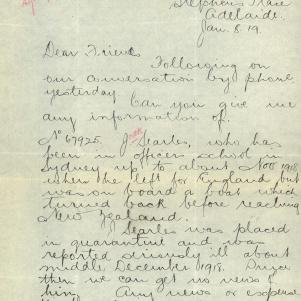 Stephens Place
Adelaide.
Jan. 8. 19.
Dear Friend
Following on
our conversation by phone
yesterday Can you give me
any information of.
No 67925. J Searles, who has
been in officers school in
Sydney up to about Nov 1918
when the left for England but
was on board a boat which
turned back before reaching
New Zealand.
J Searles was placed
in quarantine and was
reported seriously ill about
middle December 1918. Since
then we can get no news of
him. Any news or expense